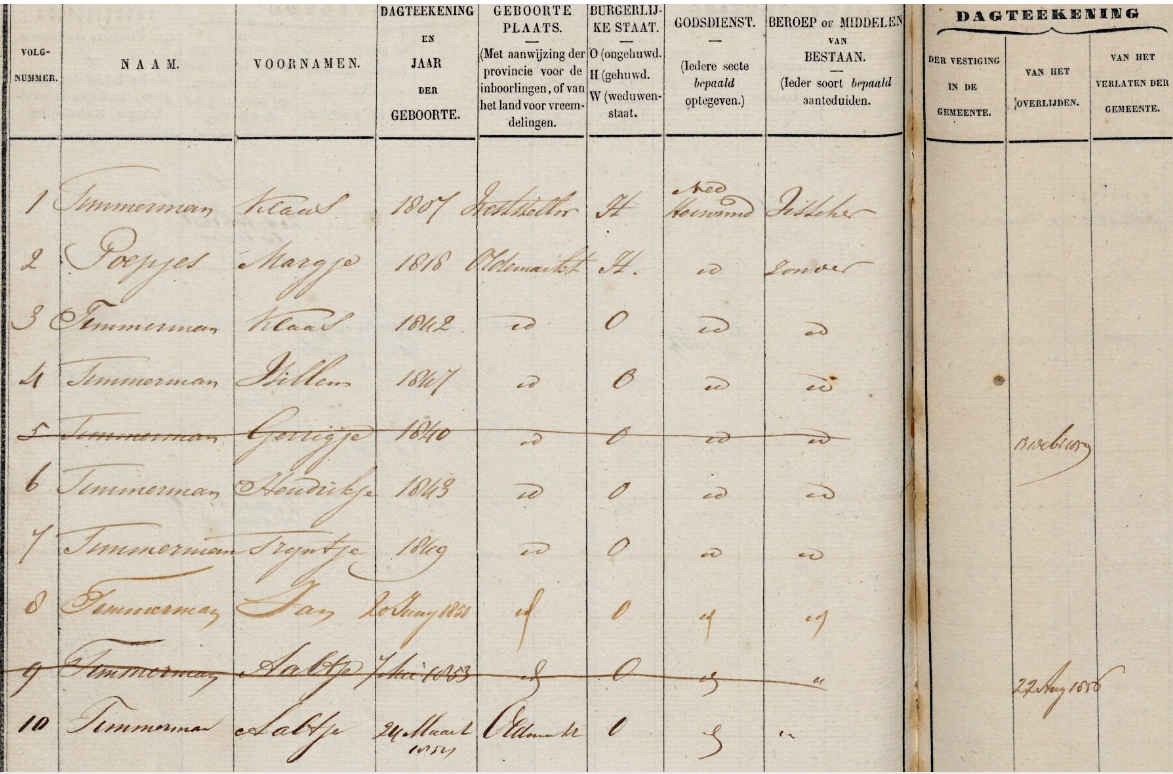 DAGTEEKENING EN JAAR DER GEBOORTE.
GEBOORTE PLAATS. (Met aanwijzing der provincie voor de inboorlingen, of van het land voor vreemdelingen.
BURGERLIJKE STAAT. O (ongehuwd. H (gehuwd. W (weduwenstaat.
GODSDIENST. (Iedere secte bepaald optegeven.)
BEROEP OF MIDDELEN VAN BESTAAN. (Ieder soort bepaald aanteduiden.)
DAGTEEKENING
VOLGNUMMER.
NAAM.
VOORNAMEN.
DER VESTIGING IN DE GEMEENTE.
VAN HET OVERLIJDEN.
VAN HET VERLATEN DER GEMEENTE.
1 Timmerman Klaas 1807 H Ned Hervormd Visscher
2 Poepjes Margje 1818 Oldemarkt H. id zonder
3 Timmerman Klaas 1842 id O id id
4 Timmerman Willem 1847 id O id id
5 Timmerman Gerrigje 1840 id O id id
6 Timmerman Hendrikje 1843 id O id id
7 Timmerman Tryntje 1849 id O id id
8 Timmerman Jan 20 id O id id
9 Timmerman Aabtje 7 Mei 1853 id O id " 22 Aug 1856
10 Timmerman Aabtje 24 Maart Oldemarkt O id "